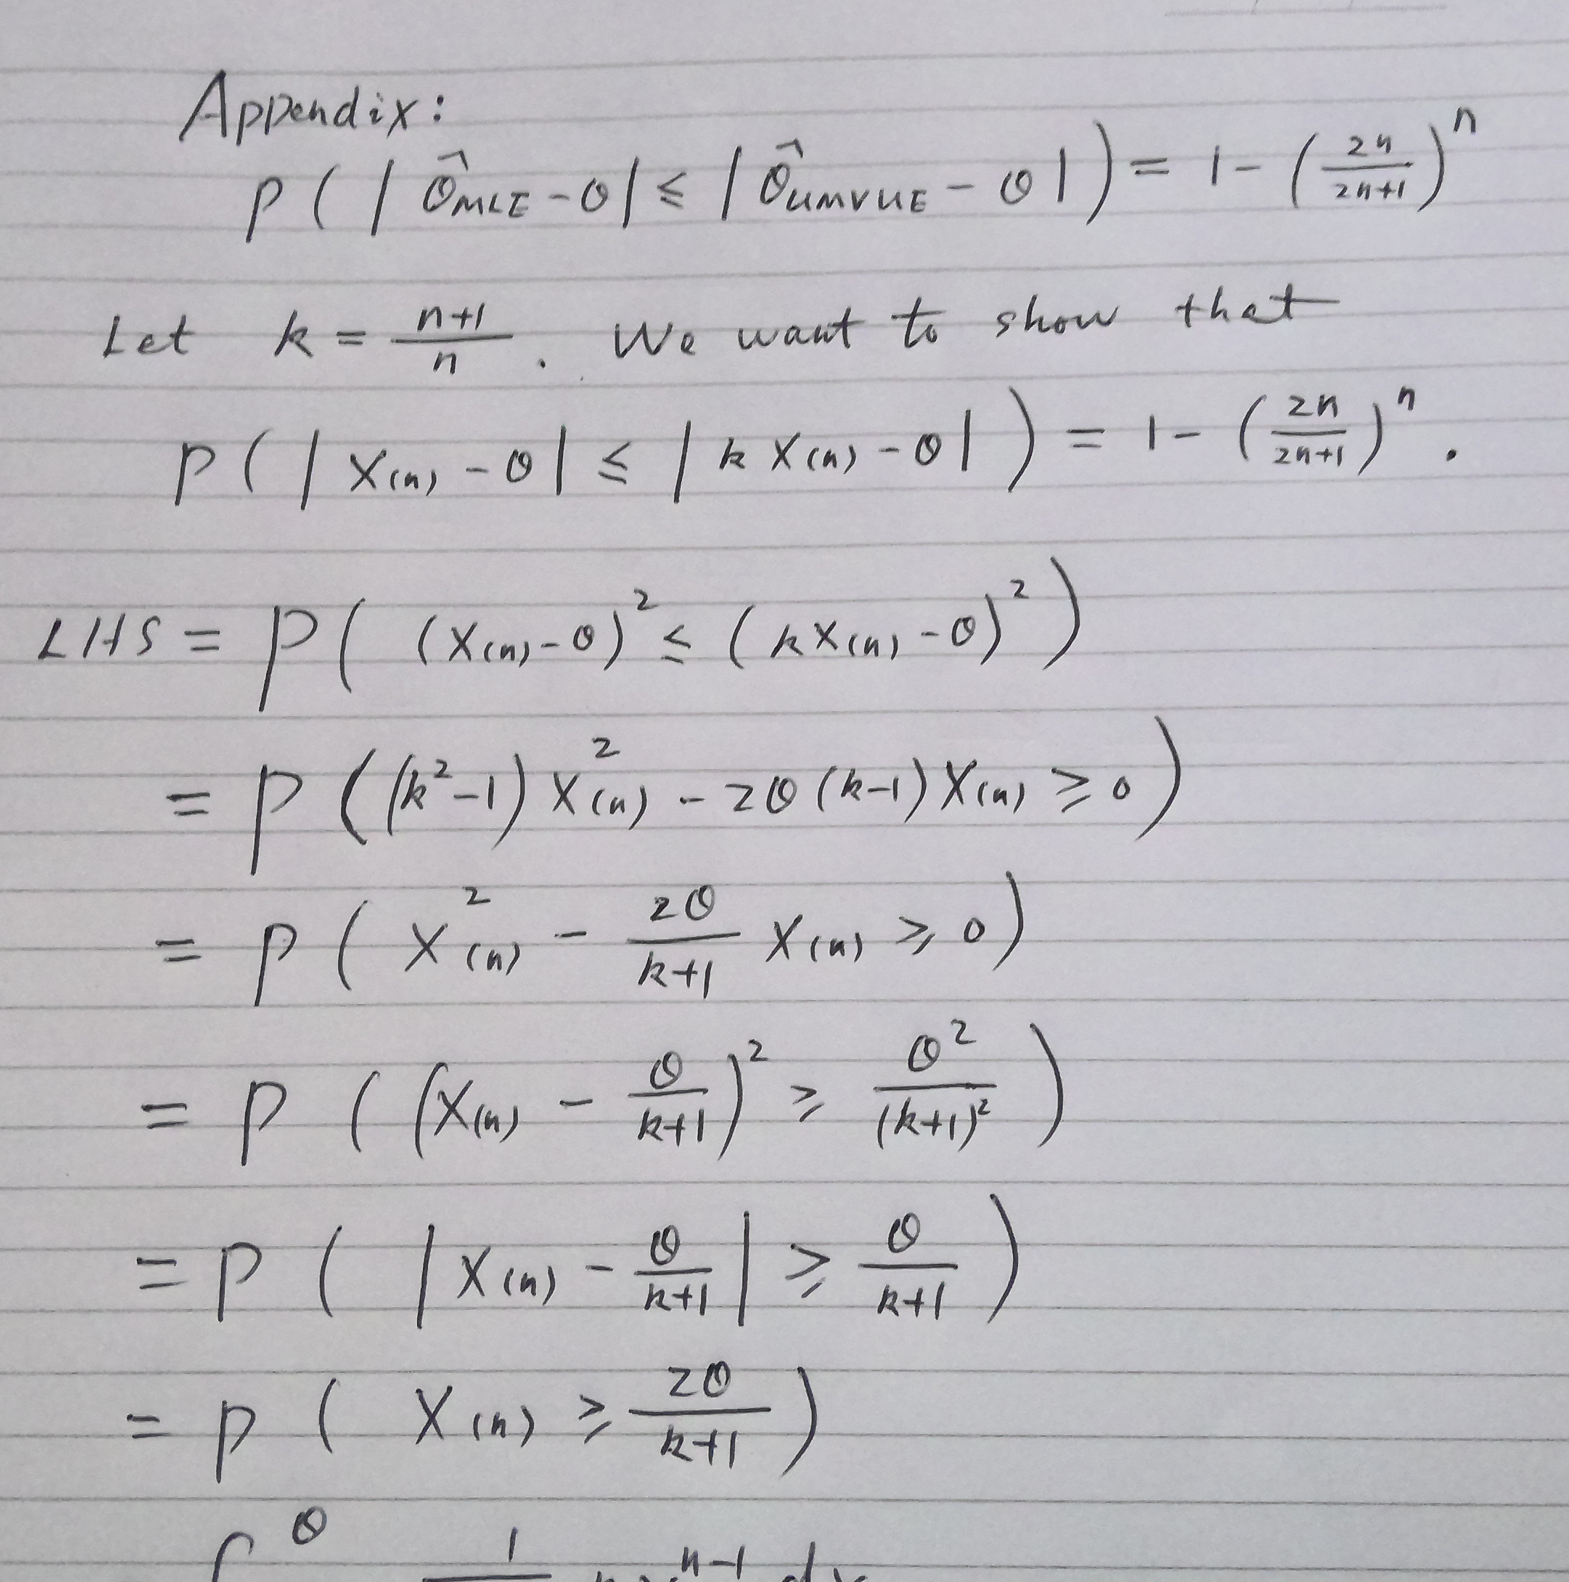 Appendix:
P(|θ̂MLE - θ| ≤ |θ̂UMVUE - θ|) = 1 - (2n/(2n+1))^n
Let k = (n+1)/n. We want to show that
P(|X(n) - θ| ≤ |kX(n) - θ|) = 1 - (2n/(2n+1))^n.
LHS = P((X(n) - θ)² ≤ (kX(n) - θ)²)
= P((k² - 1)X²(n) - 2θ(k-1)X(n) ≥ 0)
= P(X²(n) - 2θ/(k+1) X(n) ≥ 0)
= P((X(n) - θ/(k+1))² ≥ θ²/(k+1)²)
= P(|X(n) - θ/(k+1)| ≥ θ/(k+1))
= P(X(n) ≥ 2θ/(k+1))